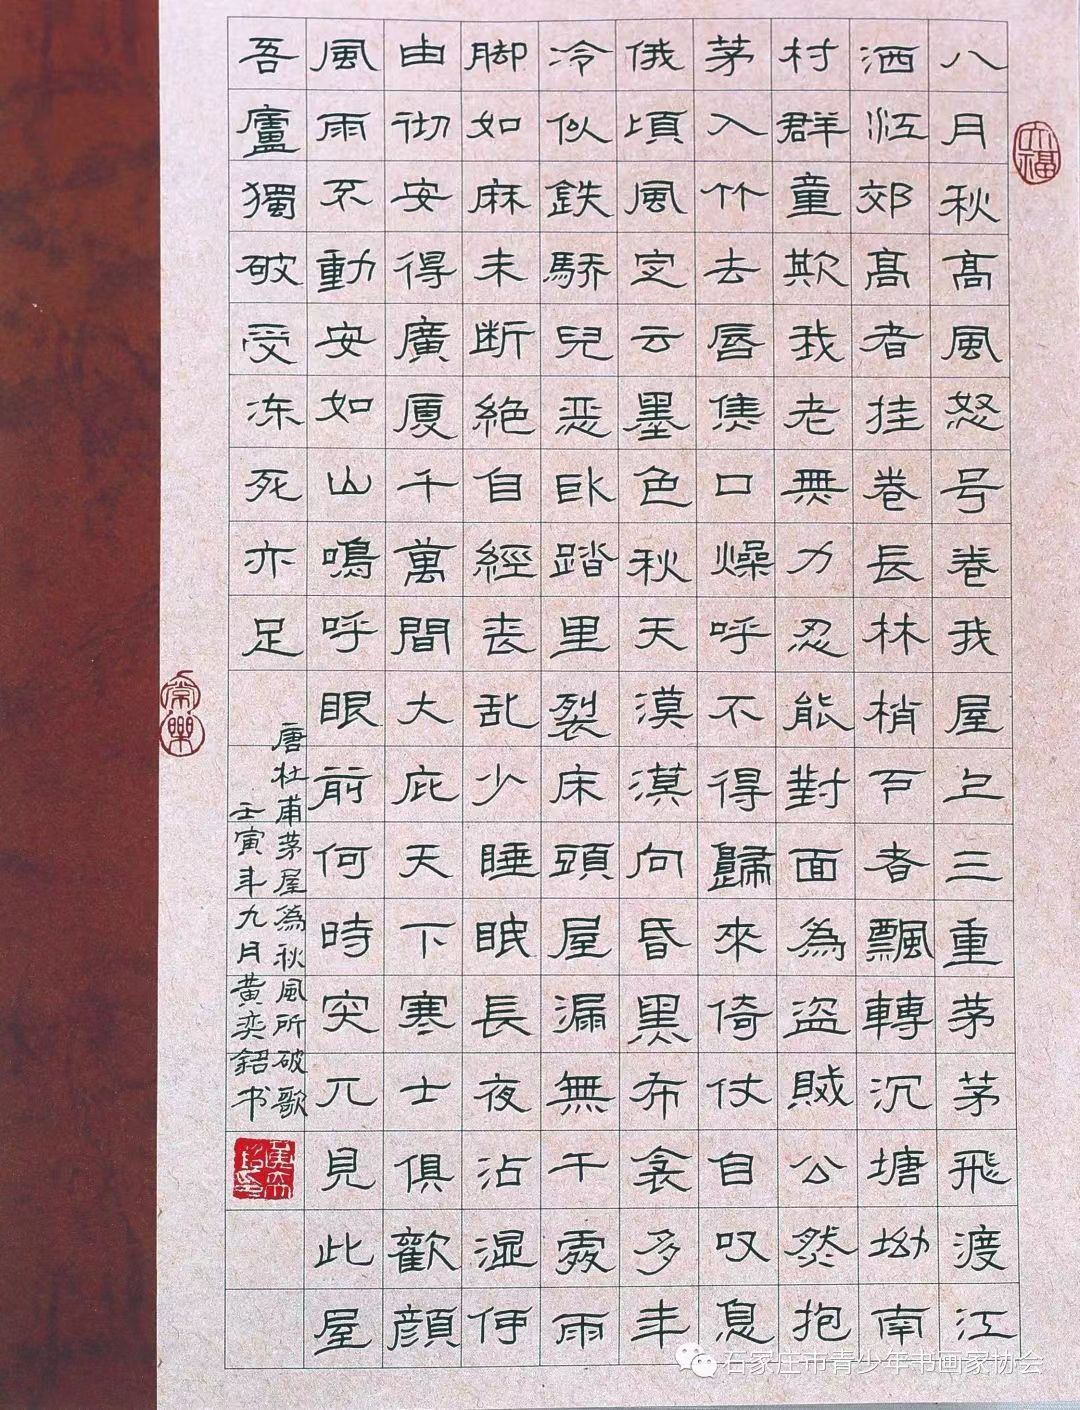 八月秋高風怒号卷我屋上三重茅茅飛渡江
洒江郊高者挂卷長林梢下者飄轉沉塘坳南
村群童欺我老無力忍能對面為盜賊公然抱
茅入竹去唇焦口燥呼不得歸來倚仗自叹息
俄頃風定云墨色秋天漠漠向昏黑布衾多年
冷似鉄驕兒恶卧踏里裂床頭屋漏無干處雨
脚如麻未断絶自經丧乱少睡眠長夜沾湿伊
由彻安得廣厦千萬間大庇天下寒士俱歡顔
風雨不動安如山鳴呼眼前何時突兀見此屋
吾廬獨破受冻死亦足
唐杜甫茅屋為秋風所破歌
壬寅年九月黄奕鉊书
常樂
石家庄市青少年书画家协会